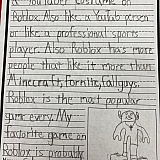 a YouTuber costume on
Roblox. Also like a YouTub person
or like a professional sports
player. Also Roblox has more
people that like it more than
Minecraft, Fornite, Fallguys.
Roblox is the most popular
game every. My
favorite game on
Roblox is probably